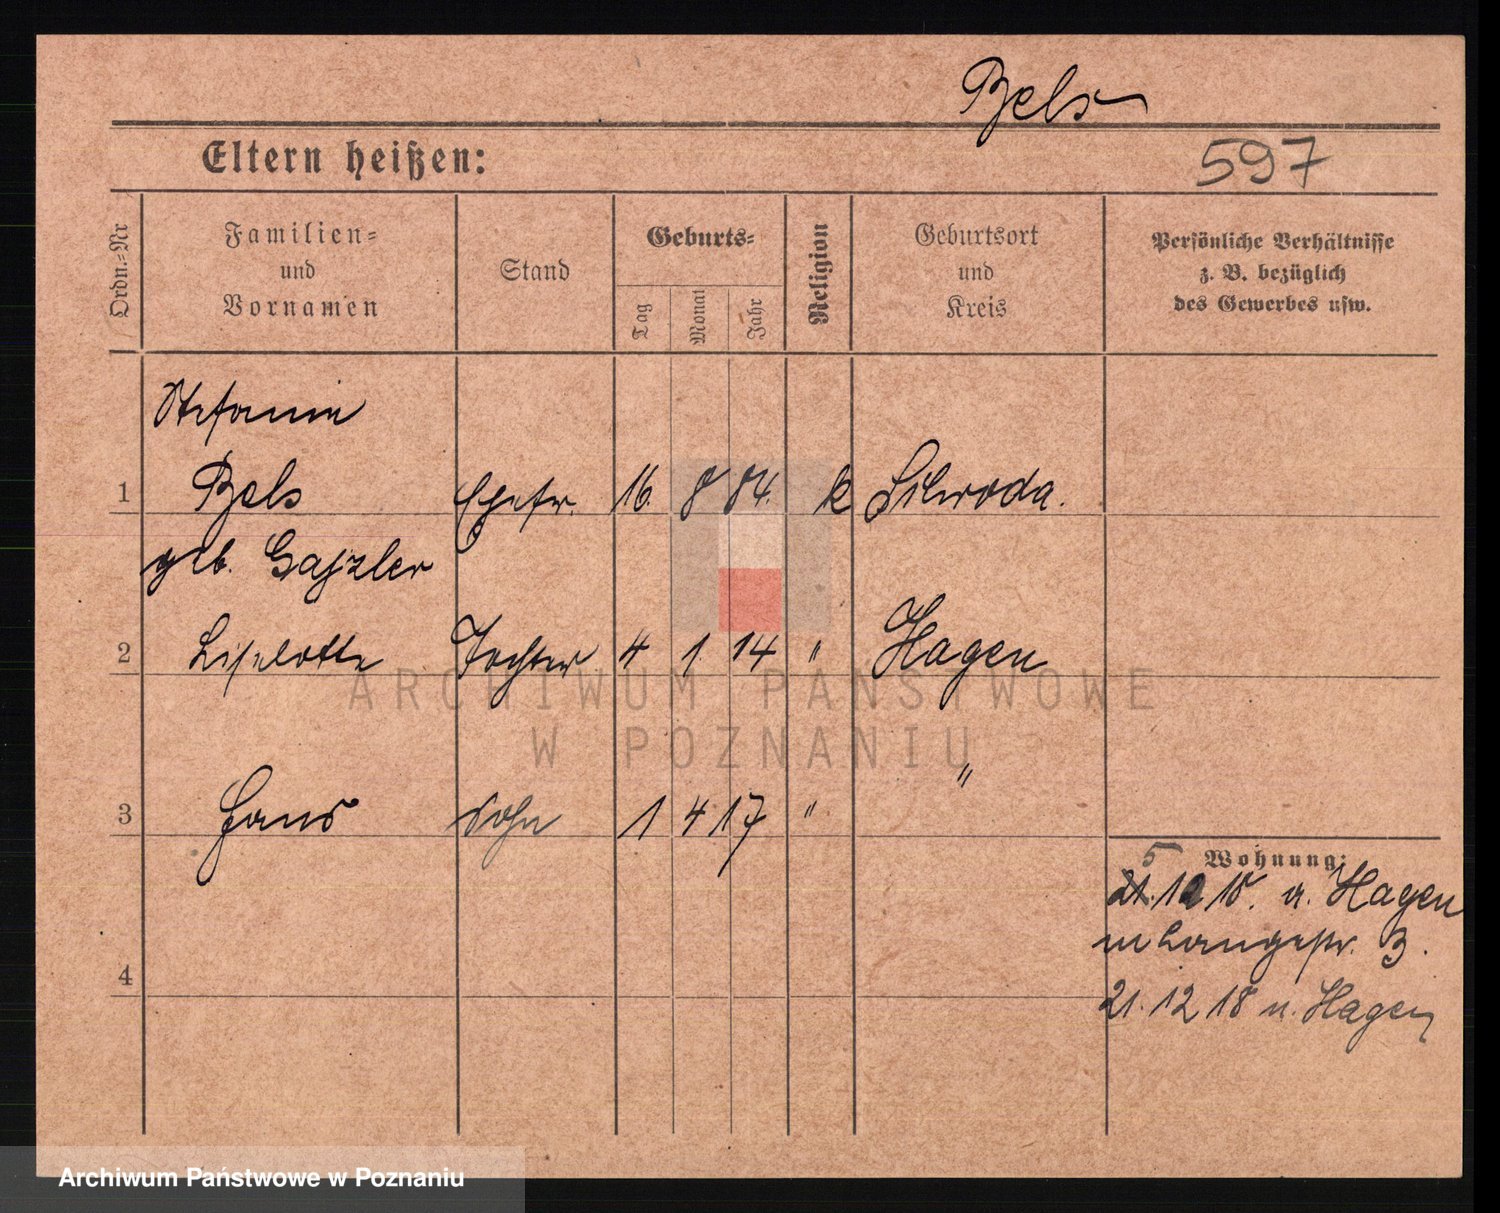 Bels
Eltern heißen:
597
Ordn.-Nr
Familien-
und
Vornamen
Stand
Geburts-
Tag
Monat
Jahr
Religion
Geburtsort
und
Kreis
Persönliche Verhältnisse
z. B. bezüglich
des Gewerbes usw.
Stefanie
1 Bels Ehefr. 16. 8 84. k
geb. Gajzler
2 Liselotte Tochter 4 1. 14 " Hagen
3 Hans Sohn 1 4 17 " "
Wohnung:
5
21. 12 18. v. Hagen
Langestr. 3.
4
21. 12 18 n. Hagen
ARCHIWUM PAŃSTWOWE
W POZNANIU
Archiwum Państwowe w Poznaniu